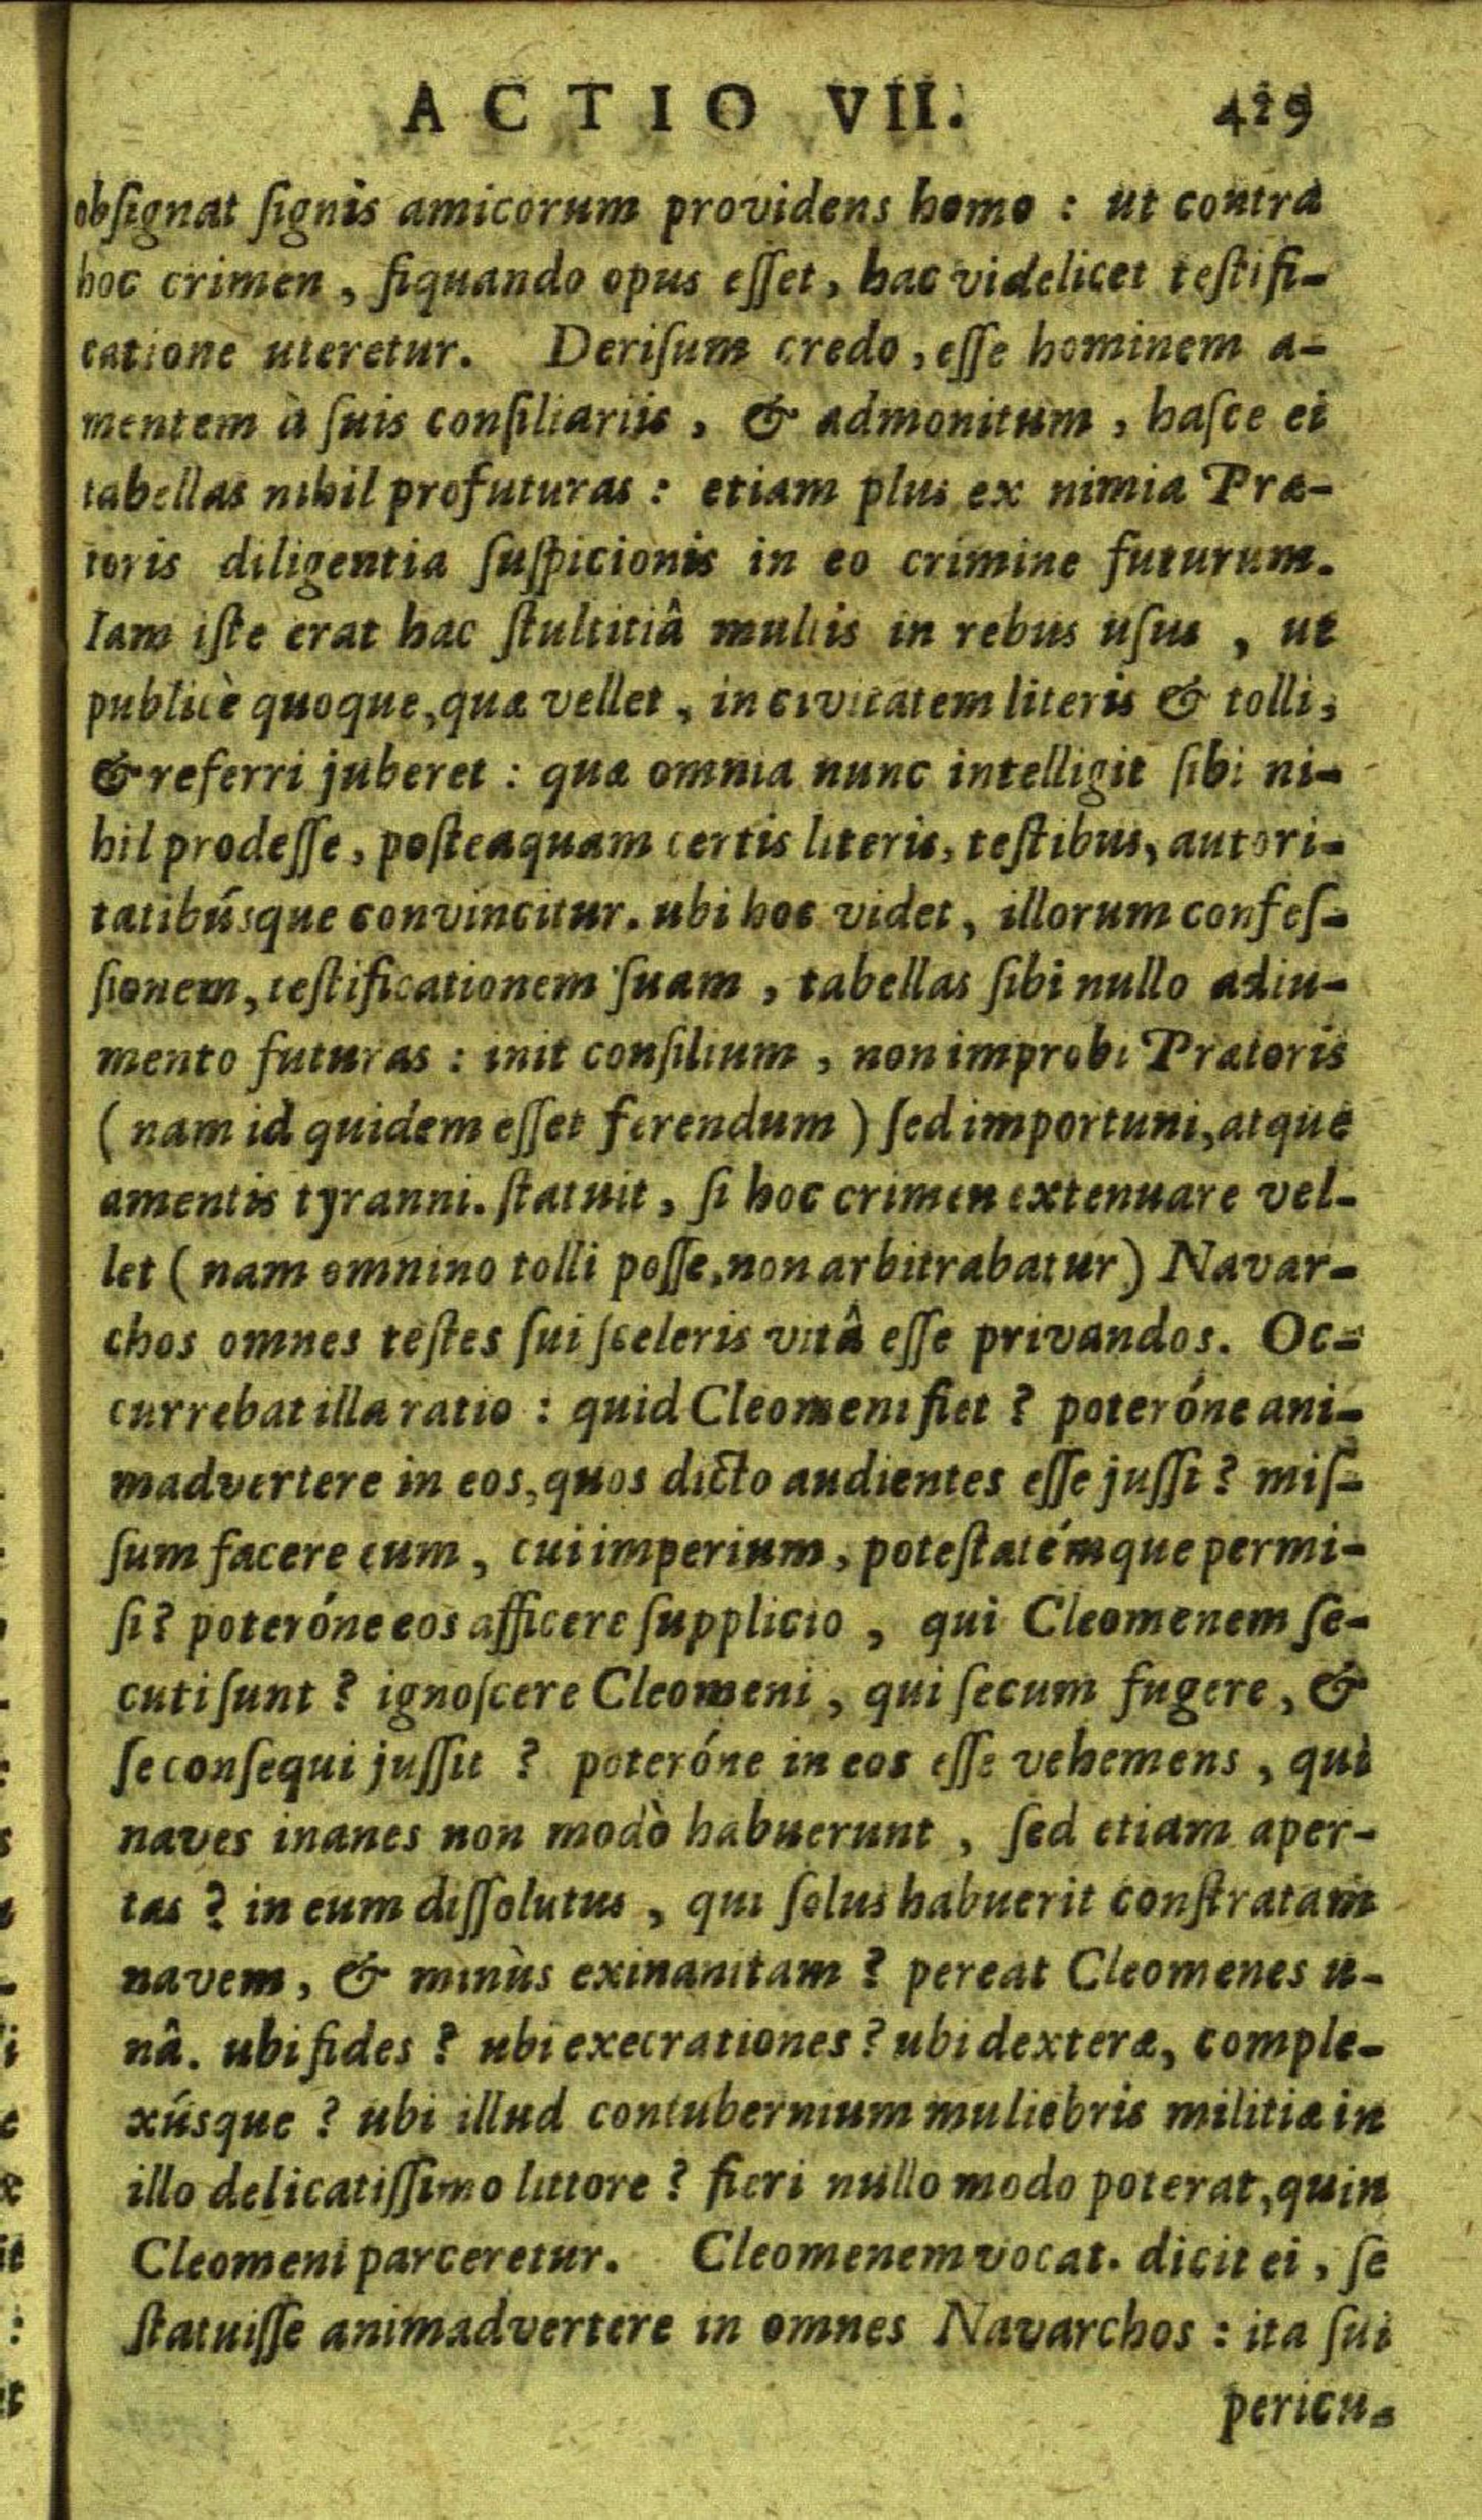 ACTIO VII. 429
obſignat ſignis amicorum providens homo : ut contra
hoc crimen , ſiquando opus eſſet, hac videlicet teſtifi-
catione uteretur. Deriſum credo, eſſe hominem a-
mentem à ſuis conſiliariis , & admonitum , haſce ei
tabellas nihil profuturas : etiam plus ex nimia Præ-
toris diligentia ſuſpicionis in eo crimine futurum.
Iam iſte erat hac ſtultitiâ multis in rebus uſus , ut
publicè quoque, quæ vellet , in civitatem literis & tolli,
& referri juberet : quæ omnia nunc intelligit ſibi ni-
hil prodeſſe, poſteaquam certis literis, teſtibus, autori-
tatibúsque convincitur. ubi hoc videt, illorum confeſ-
ſionem, teſtificationem ſuam , tabellas ſibi nullo adiu-
mento futuras : init conſilium , non improbi Prætoris
( nam id quidem eſſet ferendum ) ſed importuni, atque
amentis tyranni. ſtatuit , ſi hoc crimen extenuare vel-
let ( nam omnino tolli poſſe, non arbitrabatur ) Navar-
chos omnes teſtes ſui ſceleris vitâ eſſe privandos. Oc-
currebat illa ratio : quid Cleomeni fiet ? poteróne ani-
madvertere in eos, quos dicto audientes eſſe juſſi ? miſ-
ſum facere eum , cui imperium, poteſtatémque permi-
ſi ? poteróne eos afficere ſupplicio , qui Cleomenem ſe-
cuti ſunt ? ignoſcere Cleomeni , qui ſecum fugere , &
ſe conſequi juſſit ? poteróne in eos eſſe vehemens , qui
naves inanes non modò habuerunt , ſed etiam aper-
tas ? in eum diſſolutus , qui ſolus habuerit conſtratam
navem, & minùs exinanitam ? pereat Cleomenes u-
nâ. ubi fides ? ubi execrationes ? ubi dexteræ, comple-
xúsque ? ubi illud contubernium muliebris militiæ in
illo delicatiſſimo littore ? fieri nullo modo poterat, quin
Cleomeni parceretur. Cleomenem vocat. dicit ei , ſe
ſtatuiſſe animadvertere in omnes Navarchos : ita ſui
pericu-